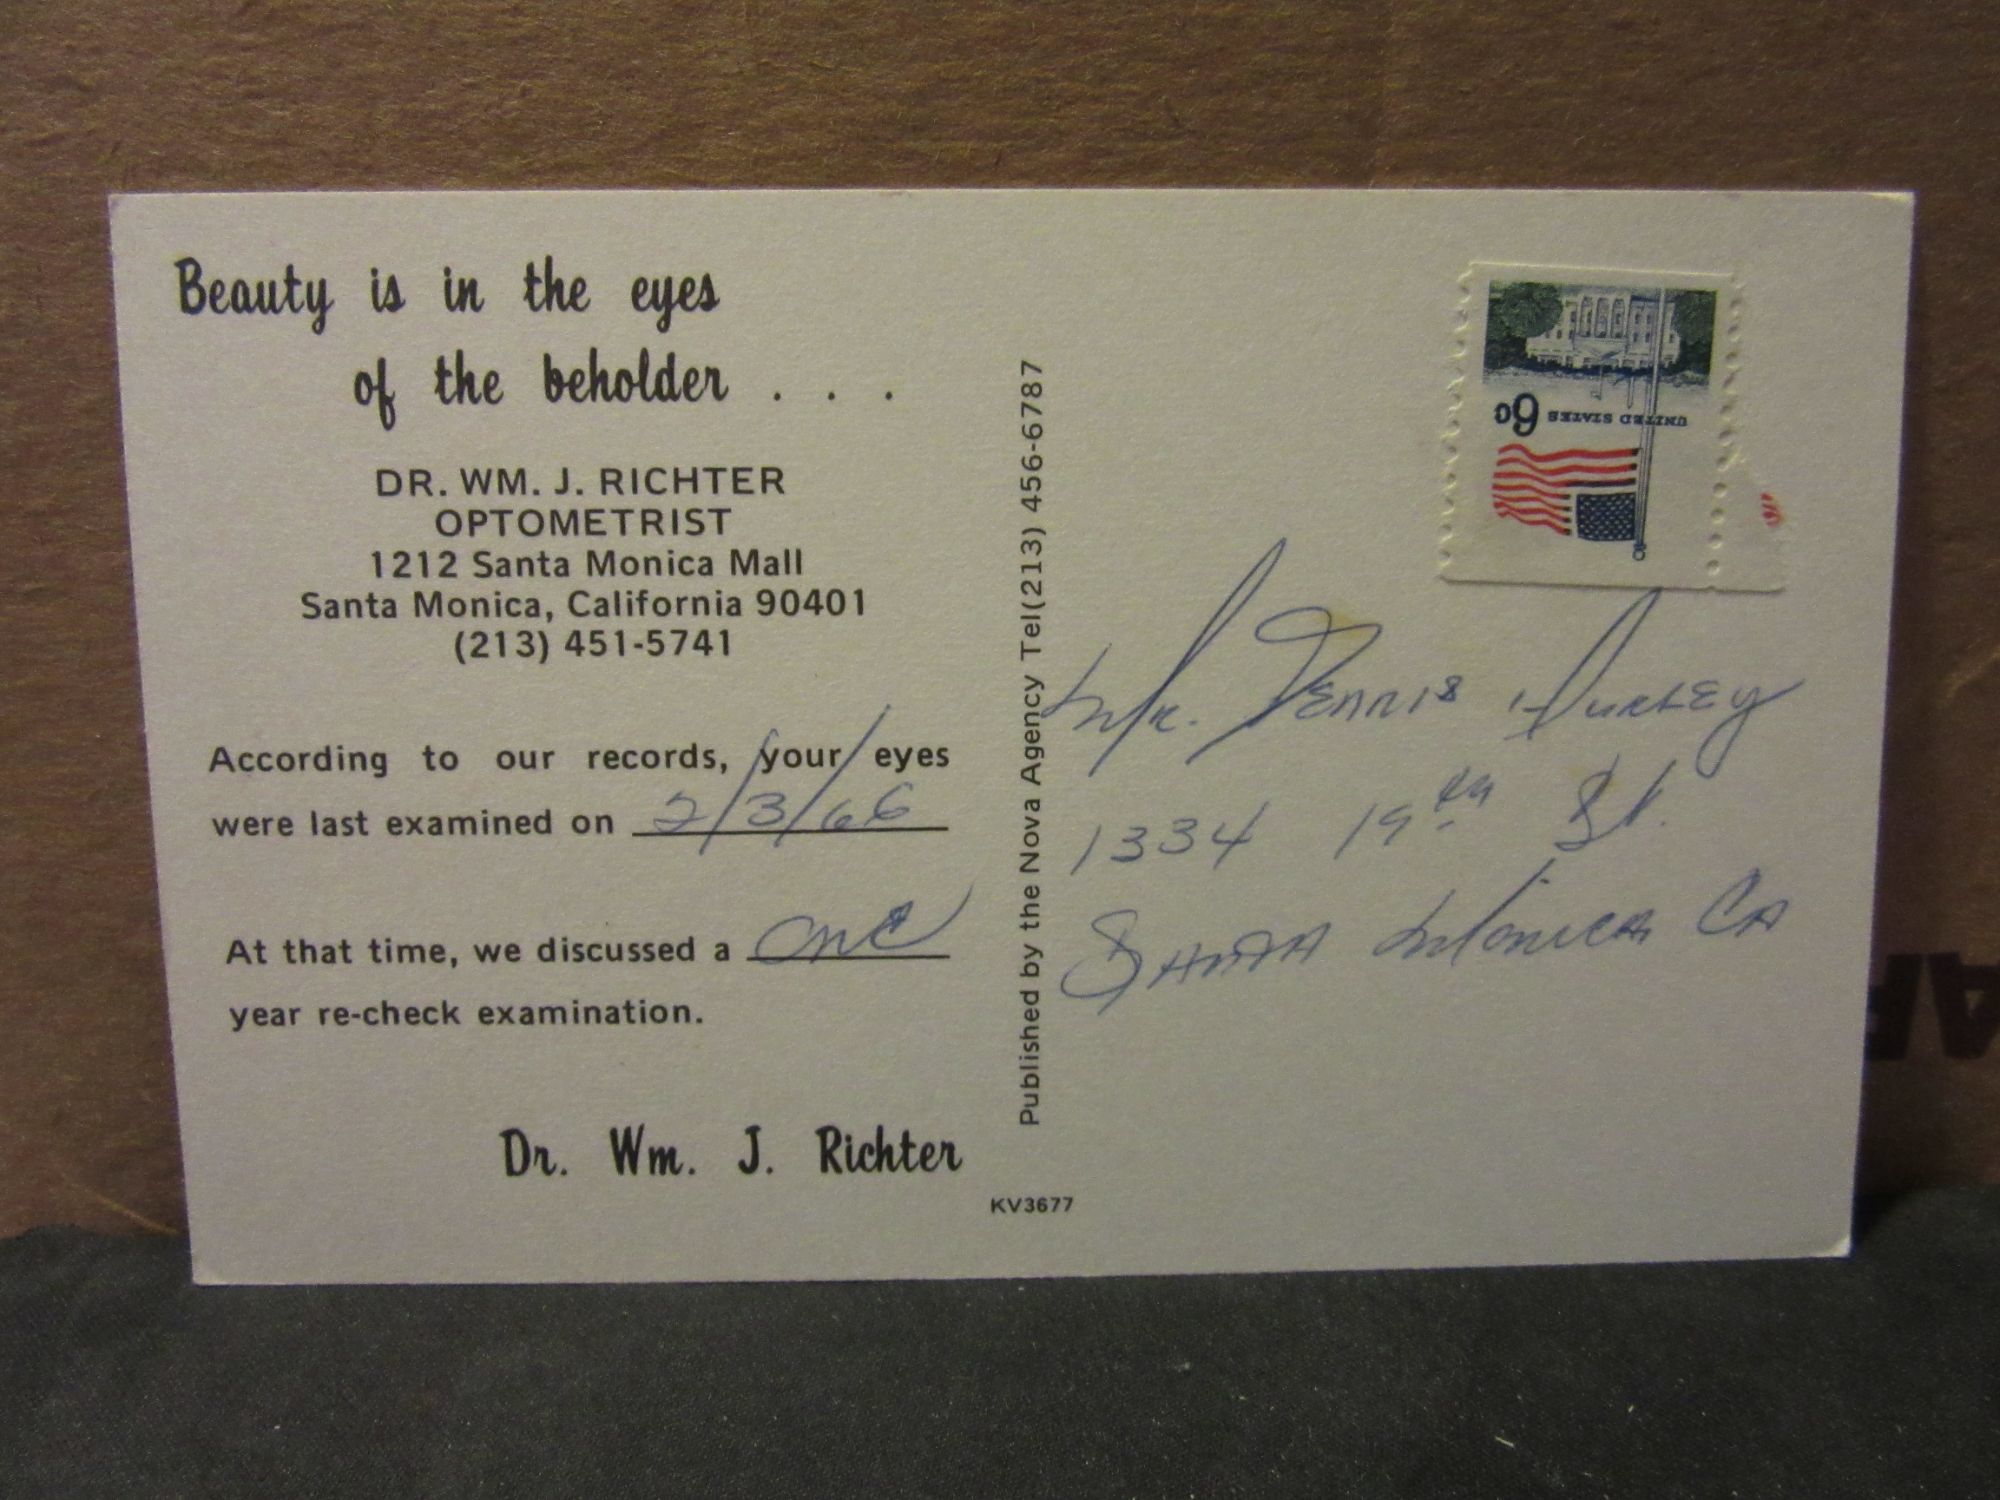 Beauty is in the eyes
of the beholder . . .
DR. WM. J. RICHTER
OPTOMETRIST
1212 Santa Monica Mall
Santa Monica, California 90401
(213) 451-5741
According to our records, your eyes
were last examined on 2/3/66
At that time, we discussed a one
year re-check examination.
Dr. Wm. J. Richter
KV3677
Published by the Nova Agency Tel(213) 456-6787
UNITED STATES 6c
Mr. Dennis
1334 19th St.
Santa Monica CA